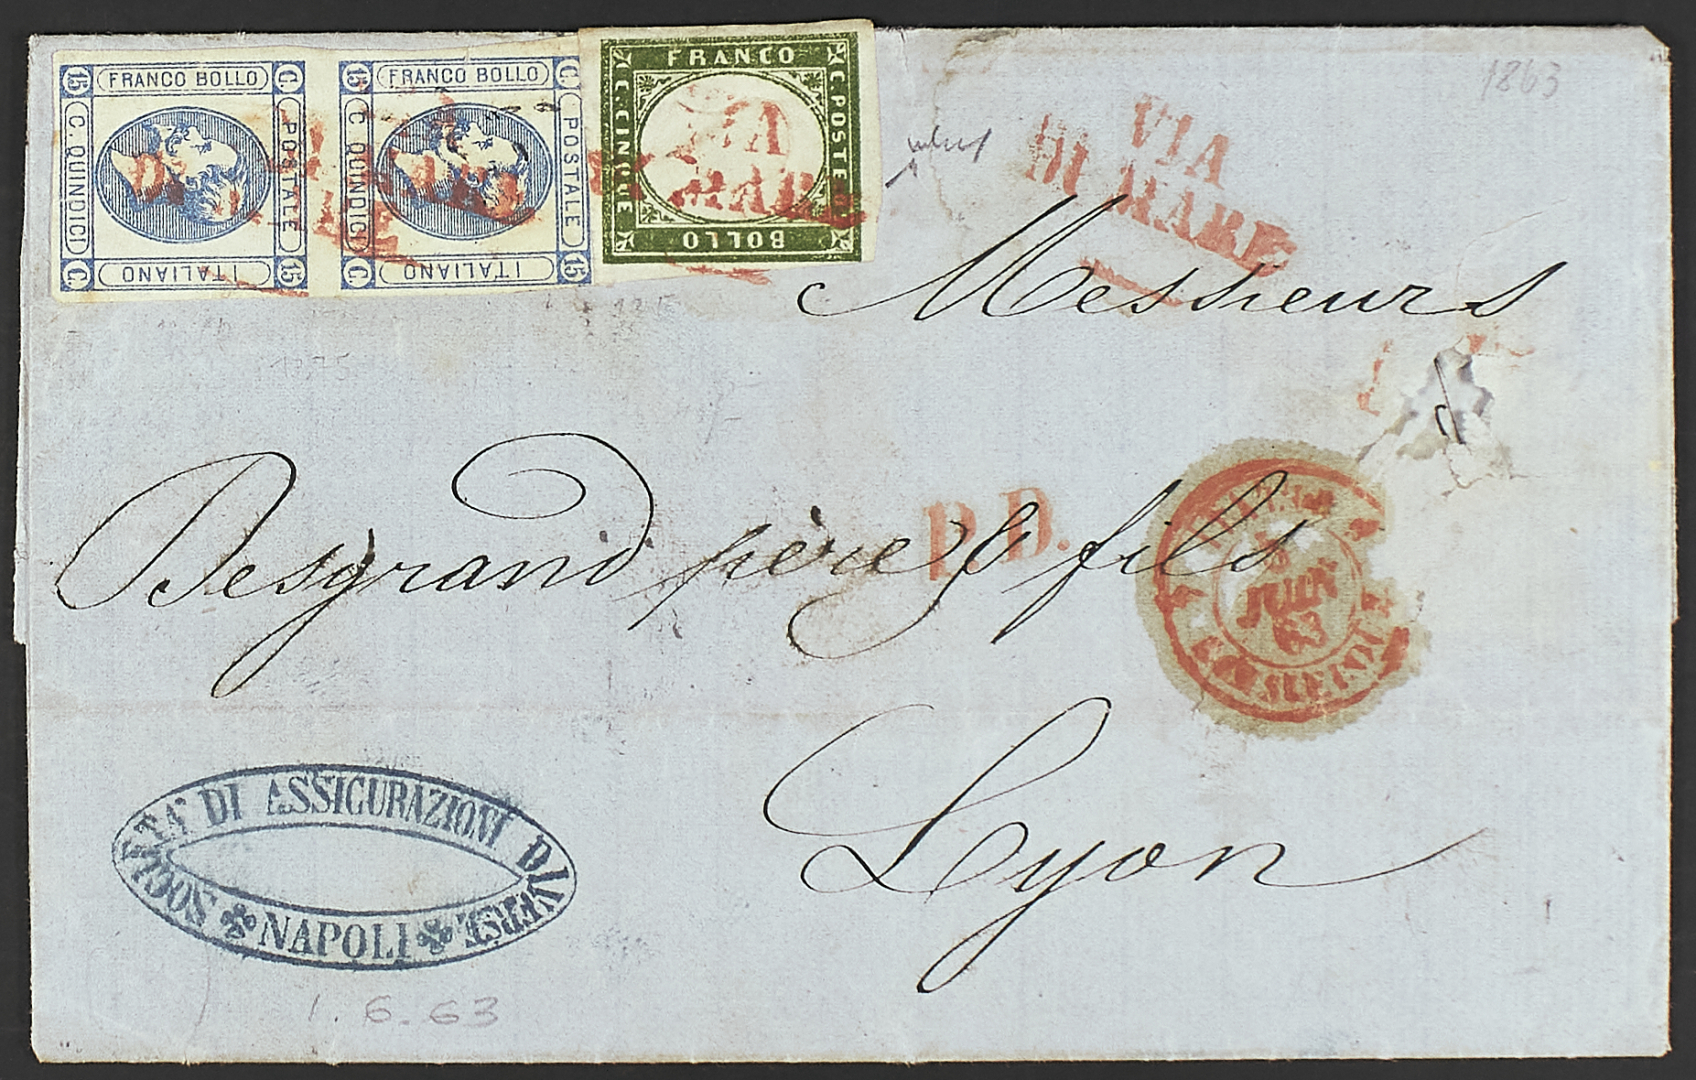 FRANCO BOLLO
C. POSTALE
15
ITALIANO
C.
C. QUINDICI
15
FRANCO BOLLO
C. POSTALE
15
ITALIANO
C.
C. QUINDICI
15
FRANCO
C. POSTE
BOLLO
C. CINQUE
VIA
DI MARE
VIA
DI MARE
1863
Messieurs
Desgrand père & fils
P.D.
8
JUIN
63
Lyon
SOCIETA' DI ASSICURAZIONI DIVERSE
NAPOLI
1.6.63